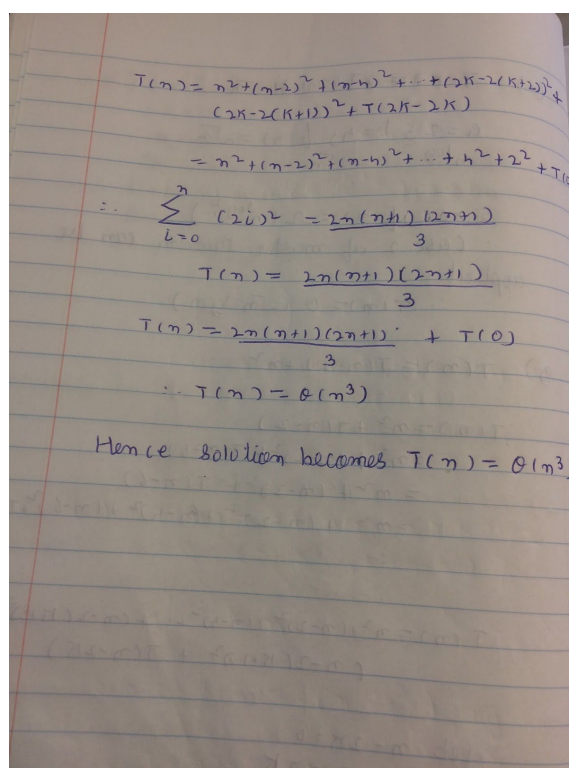 T(n) = n² + (n-2)² + (n-4)² + ... + (2K-2(K+2))² +
(2K-2(K+1))² + T(2K-2K)
= n² + (n-2)² + (n-4)² + ... + 4² + 2² + T(0
∴ n∑i=0 (2i)² = 2n(n+1)(2n+1)/3
T(n) = 2n(n+1)(2n+1)/3
T(n) = 2n(n+1)(2n+1)/3 + T(0)
∴ T(n) = θ(n³)
Hence solution becomes T(n) = θ(n³